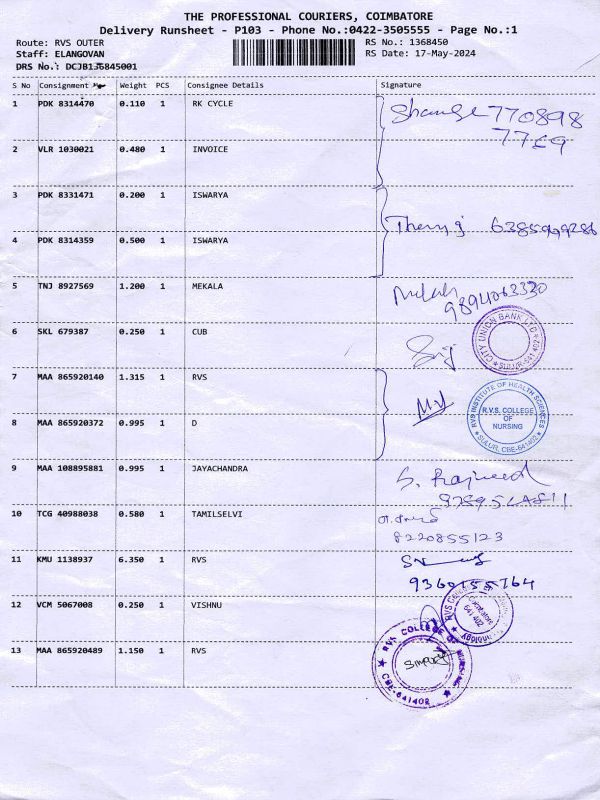 THE PROFESSIONAL COURIERS, COIMBATORE
Delivery Runsheet - P103 - Phone No.:0422-3505555 - Page No.:1
Route: RVS OUTER
RS No.: 1368450
Staff: ELANGOVAN
RS Date: 17-May-2024
DRS No.: DCJB136845001
S No Consignment Weight PCS Consignee Details Signature
1 PDK 8314470 0.110 1 RK CYCLE
770898
2 VLR 1030021 0.480 1 INVOICE
3 PDK 8331471 0.200 1 ISWARYA
4 PDK 8314359 0.500 1 ISWARYA
5 TNJ 8927569 1.200 1 MEKALA
9894063330
6 SKL 679387 0.250 1 CUB
CITY UNION BANK LTD
SULUR-641 402
7 MAA 865920140 1.315 1 RVS
RVS INSTITUTE OF HEALTH SCIENCES
R.V.S. COLLEGE
OF
NURSING
SULUR, CBE-641402
8 MAA 865920372 0.995 1 D
9 MAA 108895881 0.995 1 JAYACHANDRA
10 TCG 40988038 0.580 1 TAMILSELVI
8220855123
11 KMU 1138937 6.350 1 RVS
12 VCM 5067008 0.250 1 VISHNU
Coimbatore
641 402
13 MAA 865920489 1.150 1 RVS
RVS COLLEGE OF
CBE-641402